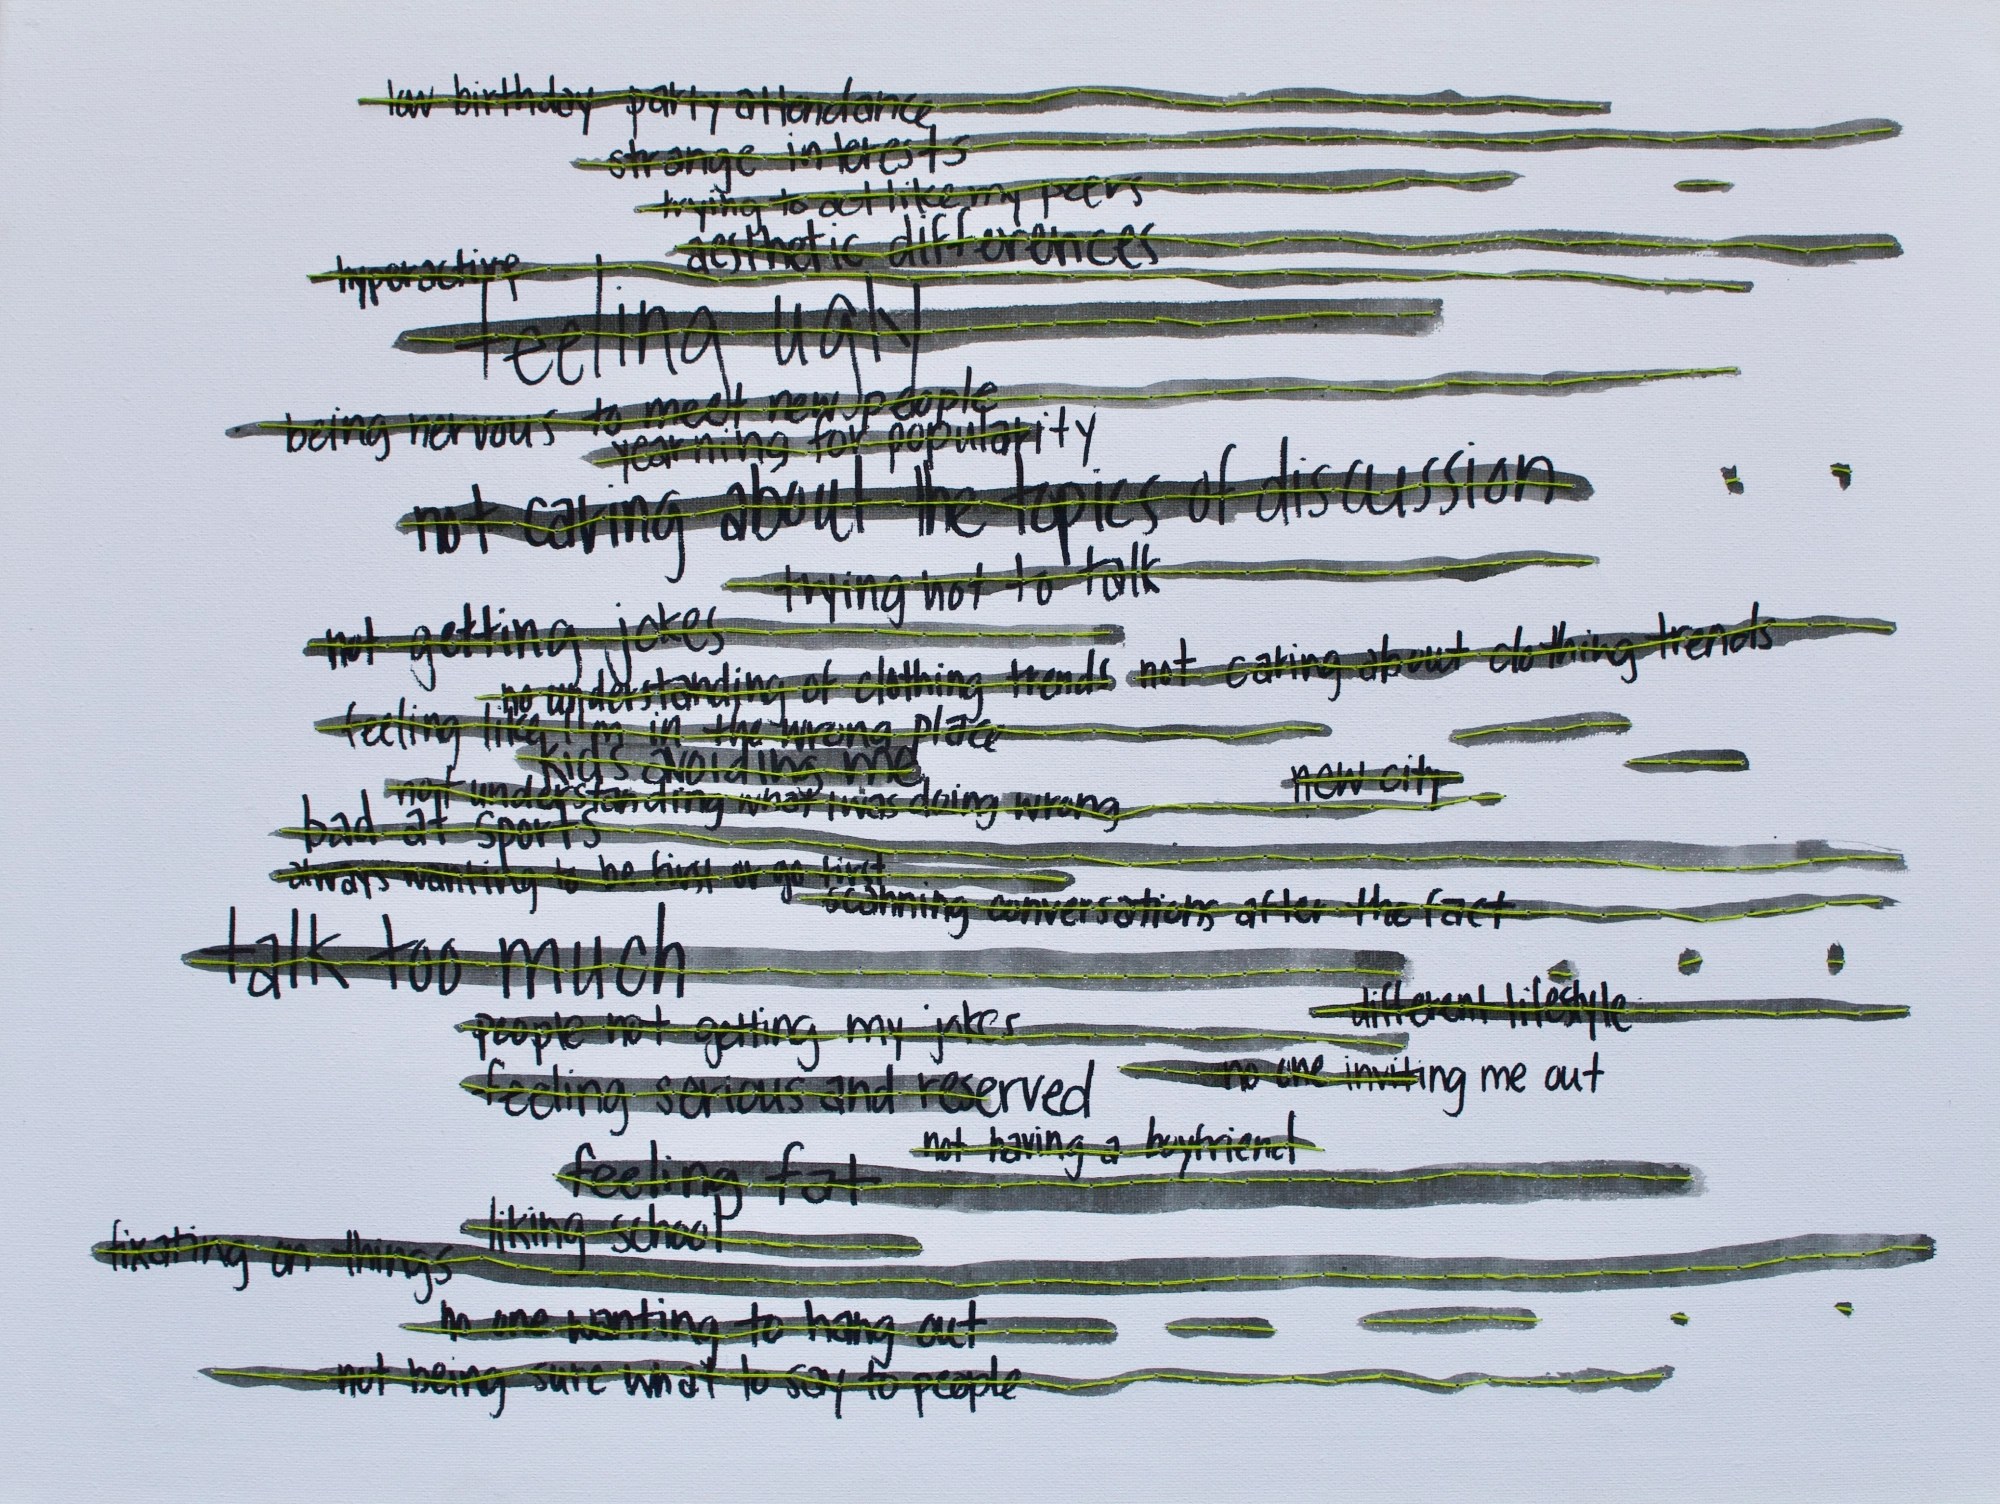 low birthday party attendance
strange interests
trying to act like my peers
aesthetic differences
hyperactive
feeling ugly
being nervous to meet new people
yearning for popularity
not caring about the topics of discussion
trying not to talk
not getting jokes
no understanding of clothing trends
not caring about clothing trends
feeling like I'm in the wrong place
kids avoiding me
new city
not understanding what I was doing wrong
bad at sports
always wanting to be first or go first
scanning conversations after the fact
talk too much
different lifestyle
people not getting my jokes
feeling serious and reserved
no one inviting me out
not having a boyfriend
feeling fat
liking school
fixating on things
no one wanting to hang out
not being sure what to say to people